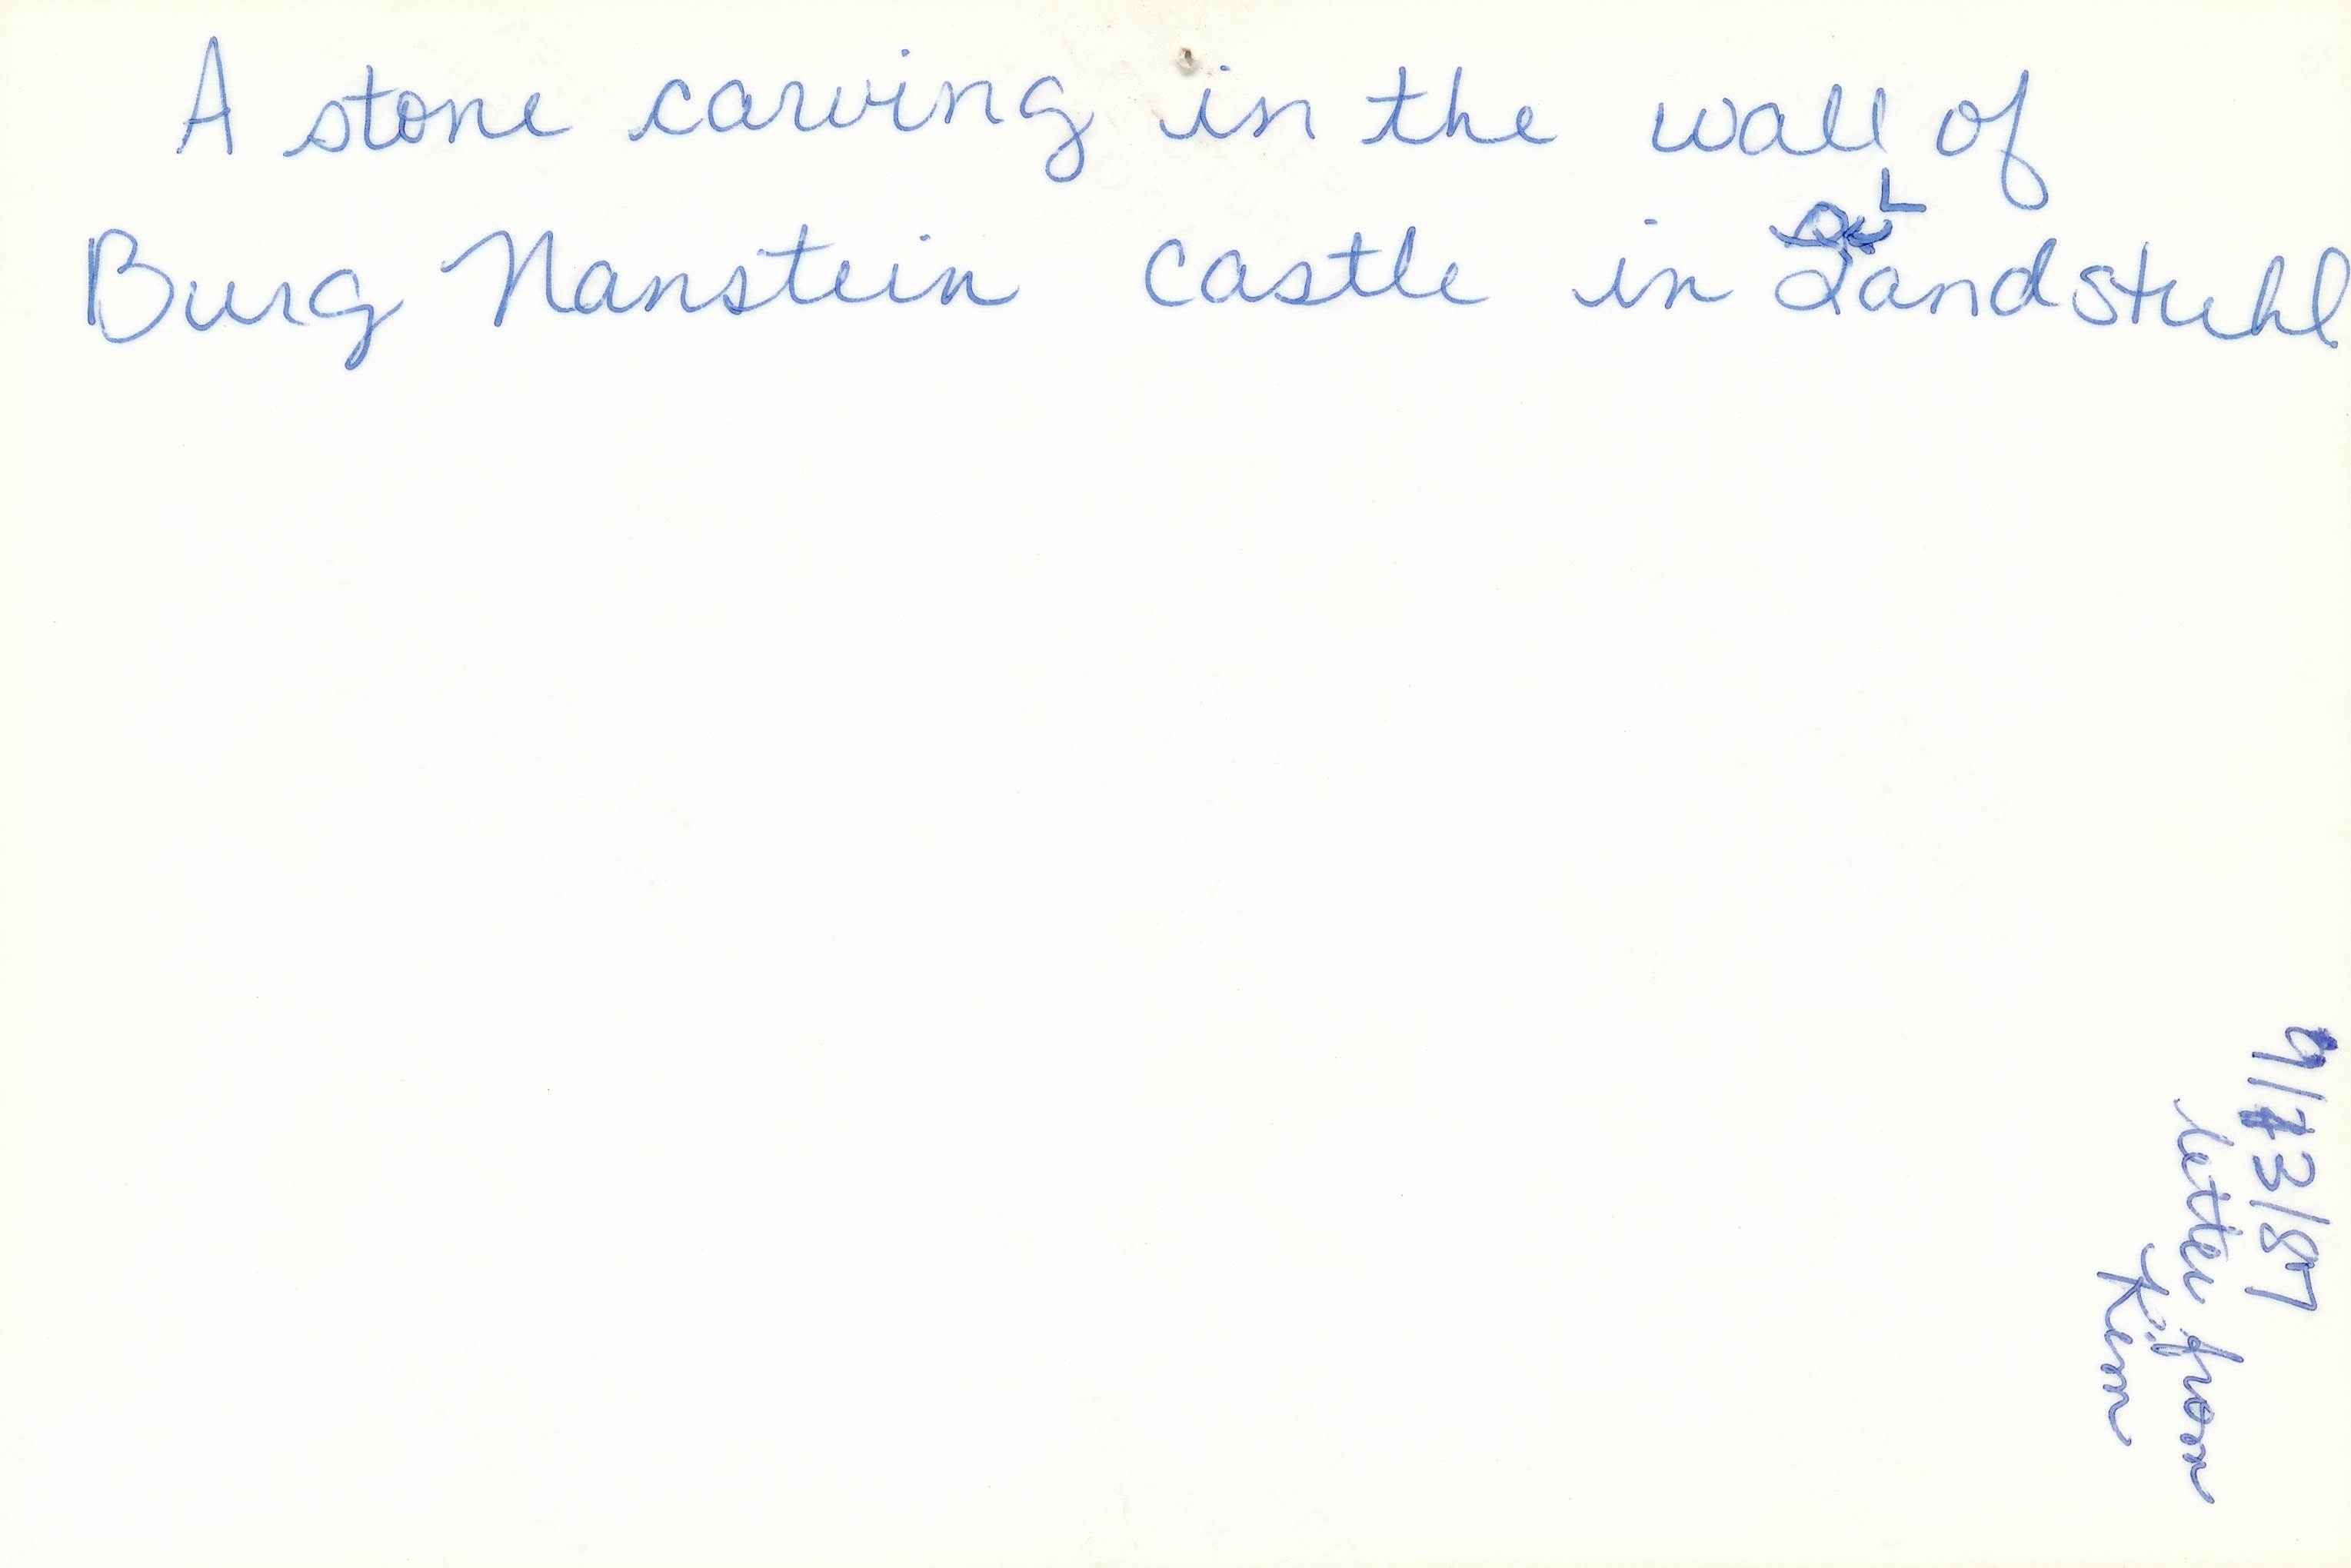 A stone carving in the wall of
Burg Nanstein castle in Landstuhl
9/13/87
letter from
Kem